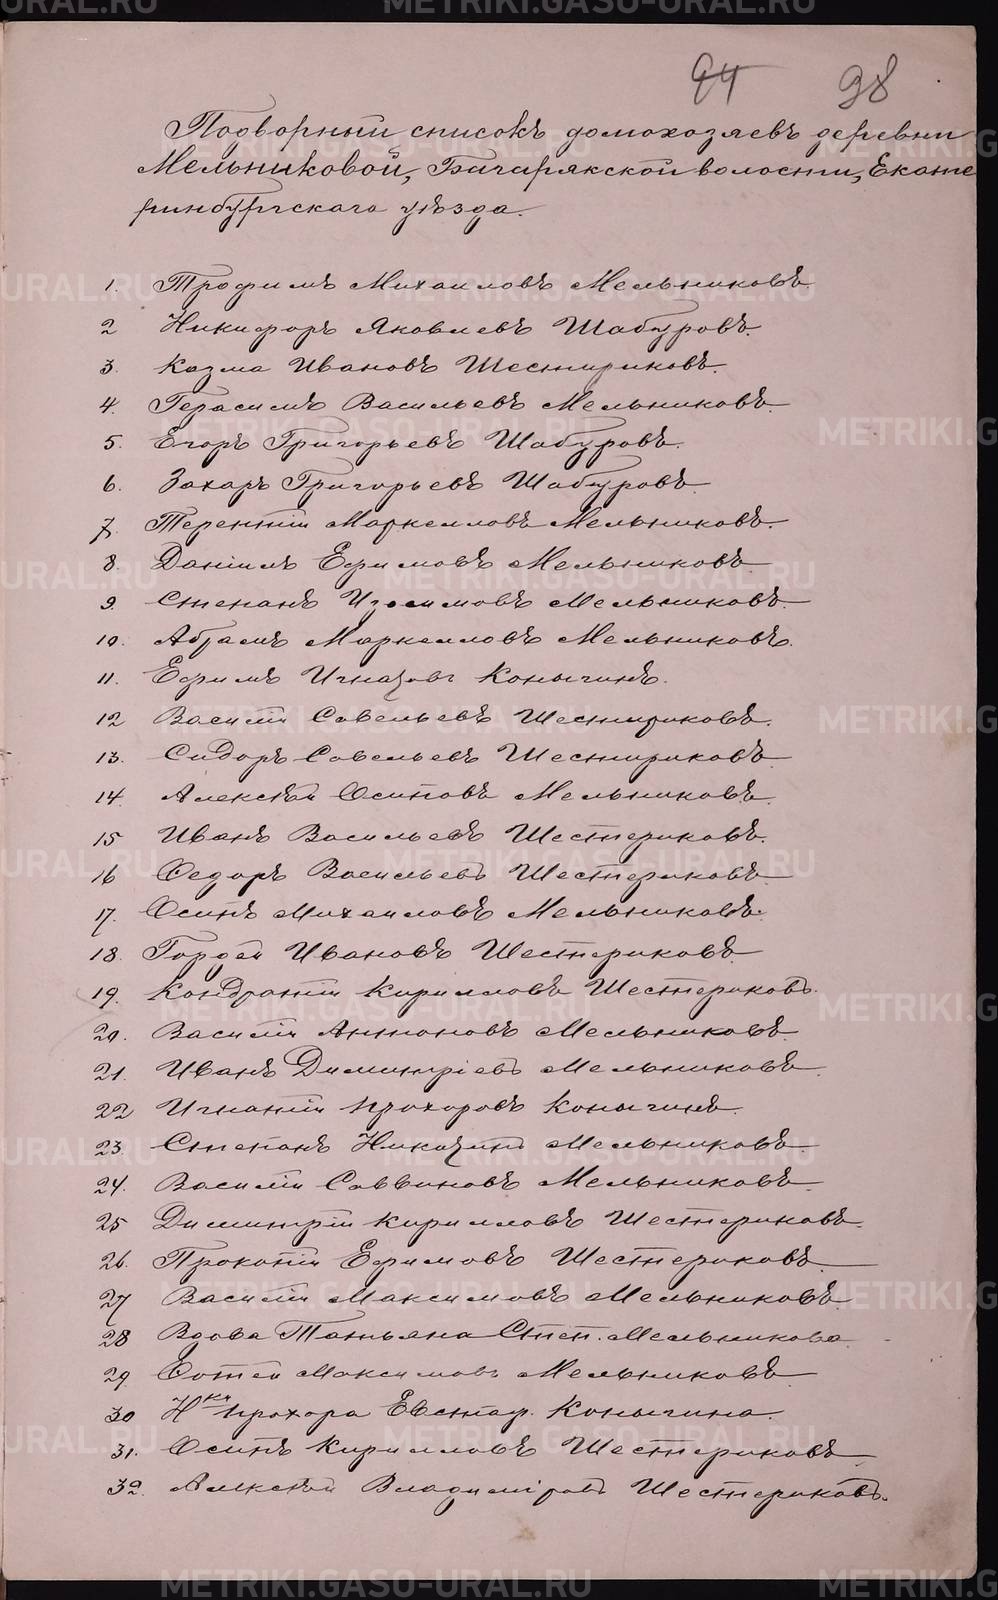 94 98
Подворный списокъ домохозяевъ деревни
Мельниковой, Бичарякской волости, Екате
ринбургскаго уѣзда.
1. Трофимъ Михаиловъ Мельниковъ
2 Никифоръ Яковлевъ Шабуровъ.
3. Козма Ивановъ Шестириковъ.
4. Герасимъ Васильевъ Мельниковъ.
5. Егоръ Григорьевъ Шабуровъ.
6. Захаръ Григорьевъ Шабуровъ.
7. Терентій Маркелловъ Мельниковъ.
8. Даніилъ Ефимовъ Мельниковъ
9. Степанъ Изосимовъ Мельниковъ.
10. Абрамъ Маркелловъ Мельниковъ.
11. Ефимъ Конычинъ.
12 Василій Савельевъ Шестириковъ.
13. Сидоръ Савельевъ Шестириковъ.
14. Алексѣй Осиповъ Мельниковъ.
15 Иванъ Васильевъ Шестериковъ.
16 Федоръ Васильевъ Шестериковъ
17. Осипъ Михаиловъ Мельниковъ.
18. Гордей Ивановъ Шестериковъ.
19. Кондратій Кирилловъ Шестериковъ.
20. Василій Антоновъ Мельниковъ.
21. Иванъ Димитріевъ Мельниковъ.
22 Игнатій Прохоровъ Конычинъ.
23. Степанъ Мельниковъ.
24. Василій Саввиновъ Мельниковъ.
25 Димитрій Кирилловъ Шестериковъ.
26. Прокопій Ефимовъ Шестериковъ.
27 Василій Максимовъ Мельниковъ.
28 Вдова Татьяна Степ. Мельникова
29 Максимовъ Мельниковъ
30 Н-ки Прохора Евстаф. Конычина.
31. Осипъ Кирилловъ Шестериковъ
32. Алексѣй Владиміровъ Шестериковъ.
METRIKI.GASO-URAL.RU